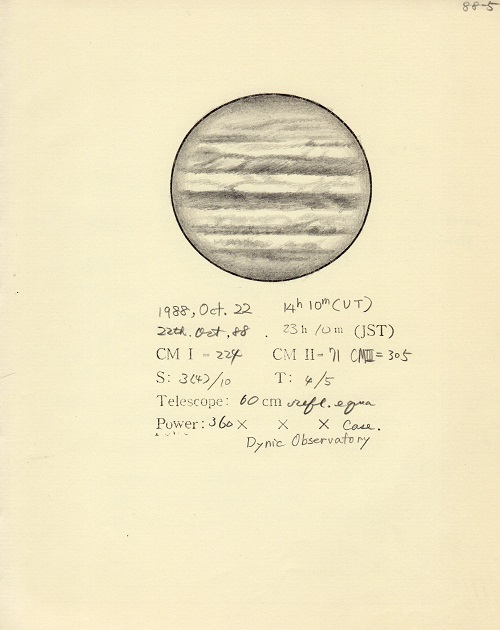 88-5
1988, Oct. 22 14h 10m (UT)
22th. Oct, 88 . 23h 10m (JST)
CM I = 224 CM II = 71 CM III = 305
S: 3(4)/10 T: 4/5
Telescope: 60 cm refl. equa
Power: 360 × × × Case.
Dynic Observatory